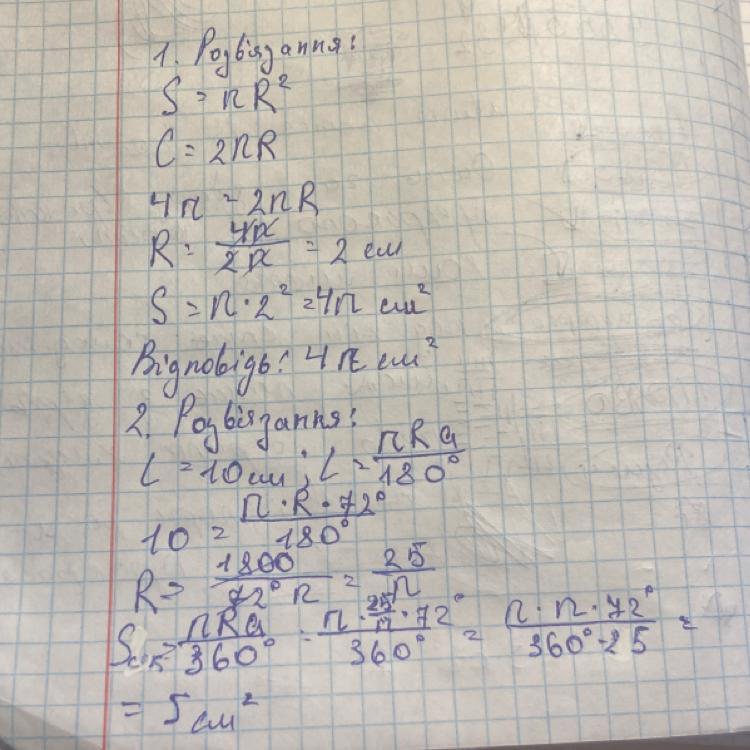 1. Розвязання:
S = πR²
C = 2πR
4π = 2πR
R = 4π/2π = 2 см
S = π · 2² = 4π см²
Відповідь: 4π см²
2. Розвязання:
l = 10 см; l = πRα/180°
10 = π · R · 72°/180°
R = 1800/72° π = 25/π
Sск = πRα/360° = π · 25/π · 72°/360° = π · π · 72°/360° · 25 =
= 5 см²